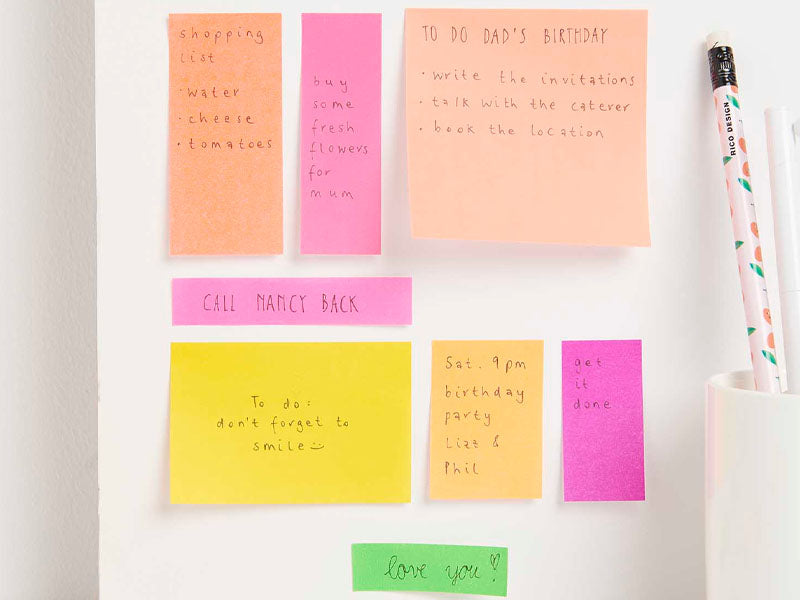 shopping
list
• water
• cheese
• tomatoes
buy
some
fresh
flowers
for
mum
TO DO DAD'S BIRTHDAY
• write the invitations
• talk with the caterer
• book the location
RICO DESIGN
CALL NANCY BACK
To do:
don't forget to
smile
Sat. 9pm
birthday
party
Lizz &
Phil
get
it
done
love you!